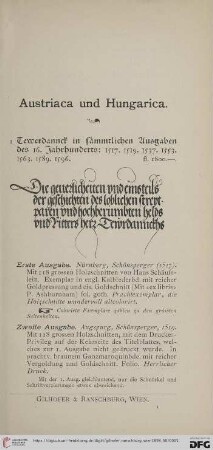 Austriaca und Hungarica.
1 Tewerdannck in sämmtlichen Ausgaben
des 16. Jahrhunderts: 1517, 1519, 1537, 1553,
1563, 1589, 1596. fl. 1800.—.
Die geuerlicheiten vnd einsteils
der geschichten des loblichen streyt-
paren vnd hochberümbten helds
vnd Ritters herr Tewrdannckhs
Erste Ausgabe. Nürnberg, Schönsperger (1517).
Mit 118 grossen Holzschnitten von Hans Schäufe-
lein. Exemplar in engl. Kalblederbd mit reicher
Goldpressung und die. Goldschnitt (Mit ex libris
P. Ashburnham) fol. goth. Prachtexemplar, die
Holzschnitte wundervoll altcolorirt.
Colorirte Exemplare gehören zu den grössten
Seltenheiten.
Zweite Ausgabe. Augspurg, Schönsperger, 1519.
Mit 118 grossen Holzschnitten, mit dem Drucker-
Privileg auf der Kehrseite des Titelblattes, wel-
ches zur 1. Ausgabe nicht gedruckt wurde. In
neuem, braunem Ganzmaroquinbde, mit reicher
Vergoldung und Goldschnitt. Folio. Herrlicher
Druck.
Mit der 1. Ausg. gleichlautend, nur die Schnörkel und
GILHOFER & RANSCHBURG, WIEN.
1